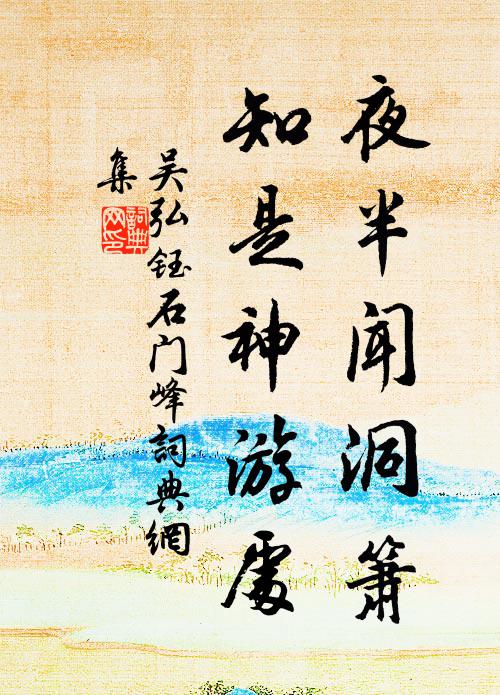 夜半闻洞箫
知是神游处
吴弘钰石门峰詞典網
集
詞典
网印